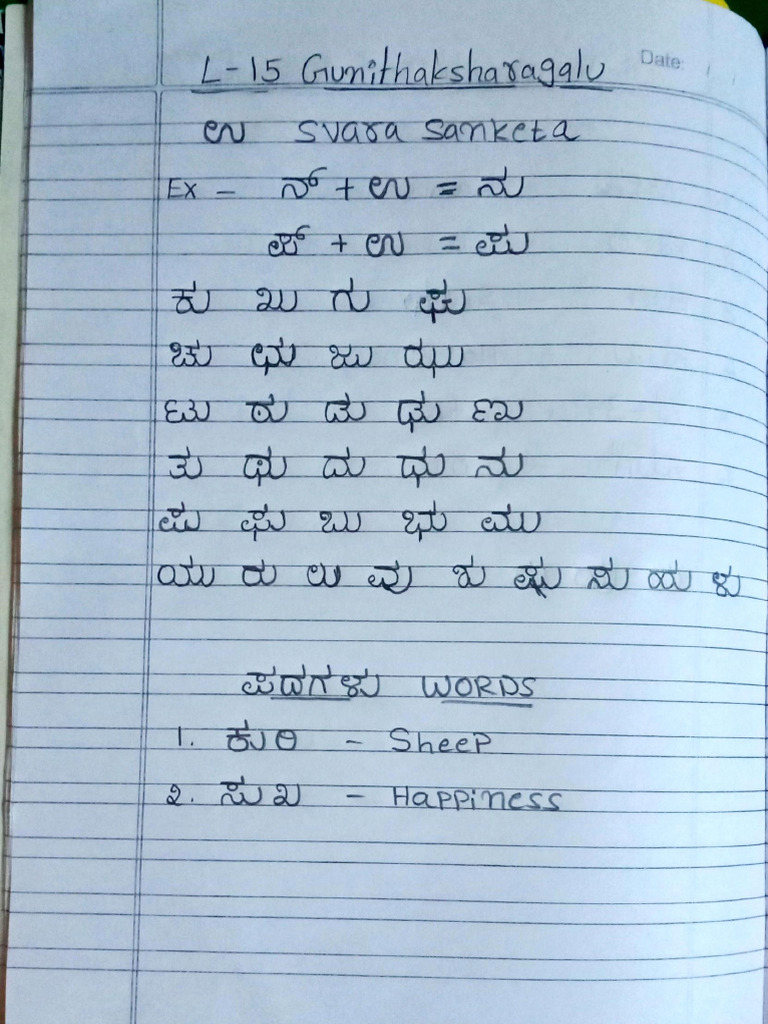 Date: / /
L-15 Gunithaksharagalu
ಉ Svara Sanketa
Ex - ನ್ + ಉ = ನು
ಪ್ + ಉ = ಪು
ಕು ಖು ಗು ಘು
ಚು ಛು ಜು ಝು
ಟು ಠು ಡು ಢು ಣು
ತು ಥು ದು ಧು ನು
ಪು ಫು ಬು ಭು ಮು
ಯು ರು ಲು ವು ಶು ಷು ಸು ಹು ಳು
ಪದಗಳು WORDS
1. ಕುರಿ - Sheep
2. ಸುಖ - Happiness